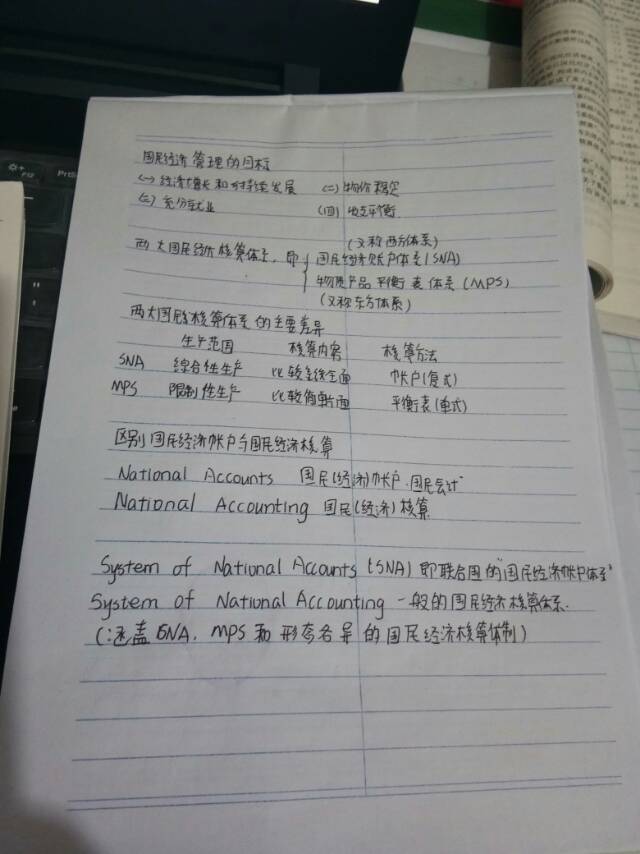 国民经济管理的目标
(一) 经济增长和可持续发展 (二) 物价稳定
(三) 充分就业 (四) 收支平衡
(又称西方体系)
两大国民经济核算体系,即 { 国民经济帐户体系(SNA)
物质产品平衡表体系(MPS)
(又称东方体系)
两大国民经核算体系的主要差异
生产范围 核算内容 核算方法
SNA 综合性生产 比较系统全面 帐户(复式)
MPS 限制性生产 比较简单片面 平衡表(单式)
区别国民经济帐户与国民经济核算
National Accounts 国民(经济)帐户·国民会计
National Accounting 国民(经济)核算
System of National Accounts (SNA) 即联合国的"国民经济帐户体系"
System of National Accounting 一般的国民经济核算体系.
(涵盖SNA, MPS和形态各异的国民经济核算体制)